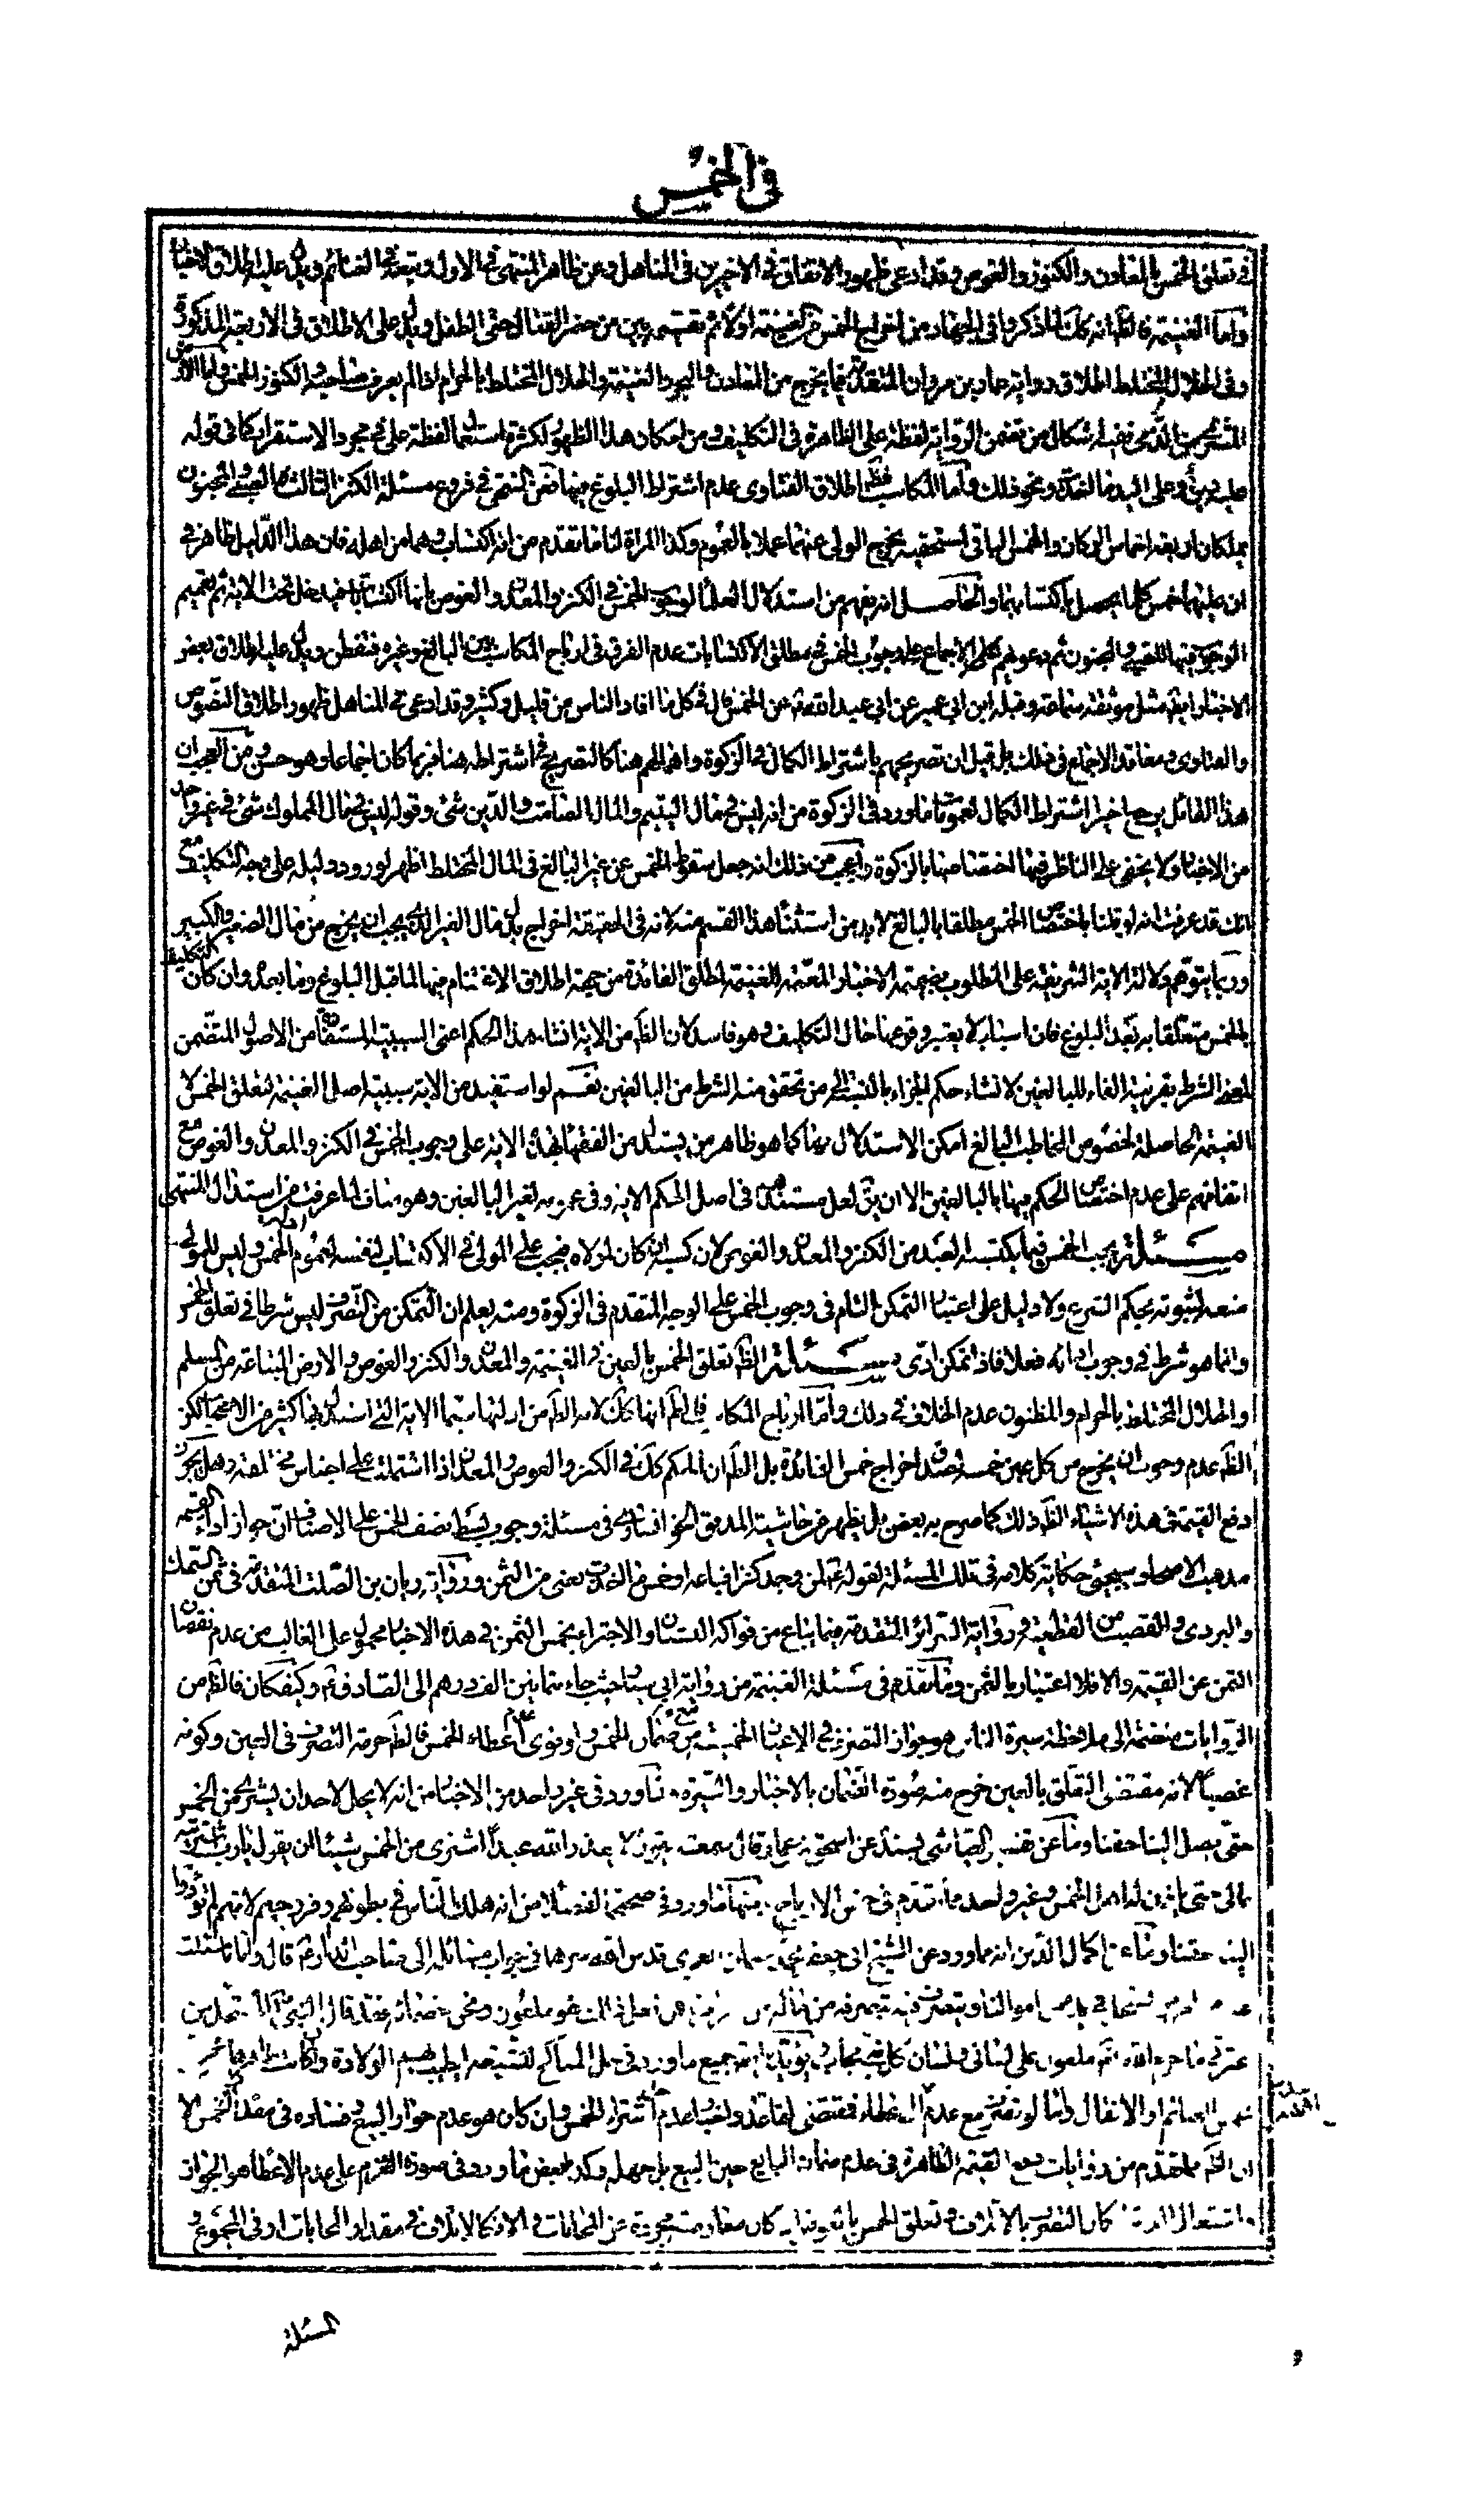 في الخمس
في تعلق الخمس بالمعادن والكنوز والغوص وقد ادعى ظهور الاتفاق في الاخيرين في المناهل وعن ظاهر المنتهى في الاول وتبعه في الغنائم ويدل عليه اطلاق الاخبار
واما الغنيمة فالظ انه كك لما ذكروا في الجهاد من اخراج الخمس من الغنيمة اولا ثم تقسيمه بين من حضر القتال حتى الطفل ويدل على الاطلاق في الاربعة المذكورة
وفي الحلال المختلط اطلاق رواية عمار بن مروان المتقدمة فيما يخرج من المعادن والبحر والغنيمة والحلال المختلط بالحرام اذا لم يعرف صاحبه والكنوز الخمس واما الارض
المشتراة من الذمى ففيه اشكال من تضمن الرواية لفظة على الظاهرة في التكليف ومن امكان هذا الظهور لكثرة استعمال لفظة على في مجرد الاستقرار كما في قوله
عليه دين وعلى اليد ما اخذت ونحو ذلك واما المكاسب فظ اطلاق الفتاوى عدم اشتراط البلوغ فيها فعن المنتهى في فروع مسئلة الكنز الثالث الصبي والمجنون
يملكان اربعة اخماس الركاز والخمس الباقي لمستحقيه يخرج الولي عنهما عملا بالعموم وكذا المراة لنا ما تقدم من انه اكتساب وهما من اهله فان هذا الدليل ظاهر في
ان عليهما خمس كلما يحصل باكتسابهما والحاصل انه يفهم من استدلال العلماء لوجوب الخمس في الكنز والمعدن والغوص بانها اكتسابات فيدخل تحت الاية ثم تعميم
الوجوب فيها للصبي والمجنون ثم دعويهم الاجماع على وجوب الخمس في مطلق الاكتسابات عدم الفرق في ارباح المكاسب بين البالغ وغيره فتفطن ويدل عليه اطلاق بعض
الاخبار ايضا مثل موثقة سماعة وقبله ابن ابي عمير عن ابي عبد الله ع عن الخمس قال في كل ما افاد الناس من قليل وكثير وقد ادعى في المناهل ظهور اطلاق النصوص
والفتاوى ومعاقد الاجماع في ذلك بل قيل ان تصريحهم باشتراط الكمال في الزكوة واهمالهم هنا كالتصريح في عدم اشتراطه هنا فربما كان اجماعا وهو حسن ومن العجب ان
هذا القائل رجح اخيرا اشتراط الكمال لعموم ما ورد في الزكوة من انه ليس في مال اليتيم والمال الصامت والدين شئ وقوله ليس في مال المملوك شئ في غير واحد
من الاخبار ولا يخفى على الناظر فيها اختصاصها بالزكوة واعجب من ذلك انه جعل سقوط الخمس عن غير البالغ في المال المختلط اظهر لورود دليله على وجه التكليف مع
انك قد عرفت انه لو قلنا باختصاص الخمس مطلقا بالبالغ لابد من استثناء هذا القسم منه لانه في الحقيقة اخراج بدل مال الغير الذي يجب ان يخرج من مال الصغير والكبير
وربما يتوهم دلالة الاية الشريفة على المطلوب بضميمة الاخبار المعممة للغنيمة لمطلق الفائدة من جهة اطلاق الاغتنام فيها لما قبل البلوغ وما بعده وان كان التكليف
بالخمس متعلقا به بعد البلوغ فان اسباب لا يعتبر وقوعها حال التكليف وهو فاسد لان الظ من الاية انشاء هذا الحكم اعنى السببية المستفادة من الاصول المتضمن
لمعنى الشرط بقرينة الفاء للبالغين لا نشاء حكم الجزاء بالنسبة الى من تحقق منه الشرط من البالغين نعم لو استفيد من الاية سببية اصل الغنيمة لتعلق الخمس لا
الغنيمة الحاصلة لخصوص المخاطب البالغ امكن الاستدلال بها كما هو ظاهر من يستدل من الفقهاء بهذه الاية على وجوب الخمس في الكنز والمعدن والغوص مع
اتفاقهم على عدم اختصاص الحكم فيها بالبالغين الا ان يق لعل مستندهم في اصل الحكم الاية وفي عمومه لغير البالغين وهو مناف لما عرفت من استدلال المنتهى
مسئلة يجب الخمس فيما يكتسبه العبد من الكنز والمعدن والغوص لان كسبه ان كان لمولاه فيجب على المولى في الاكتساب لنفسه لعموم ادلة الخمس وليس للمولى
منعه لثبوته بحكم الشرع ولا دليل على اعتبار التمكن التام في وجوب الخمس على الوجه المتقدم في الزكوة ومنه يعلم ان التمكن من التصرف ليس شرطا في تعلق الخمس
وانما هو شرط في وجوب ادائه فعلا فاذا تمكن ادى مسئلة الظ تعلق الخمس بالعين في الغنيمة والمعدن والكنز والغوص والارض المبتاعة من المسلم
والحلال المختلط بالحرام والمظنون عدم الخلاف في ذلك واما ارباح المكاسب فالظ انها كك لانه الظ من ادلتها سيما الاية التي استدل بها كثير من الاصحاب لكن
الظ عدم وجوب ان يخرج من كل عين خمسه لصدق اخراج خمس الفائدة بل الظ ان الحكم كك في الكنز والغوص والمعدن اذا اشتملت على اجناس مختلفة وهل يجوز
دفع القيمة في هذه الاشياء الظ ذلك كما صرح به بعض بل يظهر من حاشية المدقق الخوانساري في مسئلة وجوب بسط نصف الخمس على الاصناف ان جواز اداء القيمة
مذهب الاصحاب وسيجئ حكاية كلامه في تلك المسئلة لقوله ع لمن وجد كنزا فباعه اد خمس ما اخذت يعنى من الثمن ورواية ريان بن الصلت المتقدمة في ثمن السمك
والبردى والقصب من القطيعة ورواية السرائر المتقدمة فيما يباع من فواكه البستان والاجتزاء بخمس الثمن في هذه الاخبار محمول على الغالب من عدم نقصان
الثمن عن القيمة والا فلا اعتبار بالثمن وما تقدم في مسئلة الغنيمة من رواية ابي سيار حيث جاء بثمانين الف درهم الى الصادق ع وكيف كان فالظ من
الروايات منضمة الى ملاحظة سيرة الناس هو جواز التصرف في الاعيان الخمسية مع ضمان الخمس ولو نوى عدم اعطاء الخمس فالظ حرمة التصرف في العين وكونه
غصبا لانه مقتضى التعلق بالعين خرج منه صورة الضمان بالاخبار والسيرة وما ورد في غير واحد من الاخبار من انه لا يحل لاحد ان يشترى من الخمس
حتى يصل الينا حقنا وما عن تفسير العياشى بسنده عن اسحق بن عمار قال سمعته يقول لا يعذر الله عبدا اشترى من الخمس شيئا ان يقول يا رب اشتريته
بمالى حتى ياذن له اهل الخمس وغير واحد مما تقدم في خمس الارباح ومنها ما ورد في صحيحة الفضلاء من انه هلك الناس في بطونهم وفروجهم لانهم لم يؤدوا
الينا حقنا وما عن اكمال الدين انه مما ورد عن الشيخ ابى جعفر محمد بن عثمان العمرى قدس الله سرهما في جواب مسائله الى صاحب الدار ع قال واما ما سئلت
اموالنا ويتصرف فيه تصرفه من ماله فمن فعل ذلك فهو ملعون ونحن خصمائه فقد قال النبى ص المستحل من
عترتى ما حرم الله ملعون على لسانى ولسان كل نبى مجاب ويؤيده ايضا جميع ما ورد في حل المناكح لشيعتهم لطيب لهم الولادة
الغنائم او الانفال واما لو تصرف مع عدم الاعطاء فمقتضى القاعدة واخبار عدم حل اشتراء الخمس وان كان هو عدم جواز البيع وفساده في مقدار الخمس الا
ان الظ مما تقدم من روايات دفع القيمة الظاهرة في عدم ضمان البايع حين البيع بل جهله وكذا بعض ما ورد في صورة العزم على عدم الاعطاء هو الجواز
كان التصرف بالاتلاف وتعلق الخمس في مقدار المحابات او في المجموع و
المسئلة